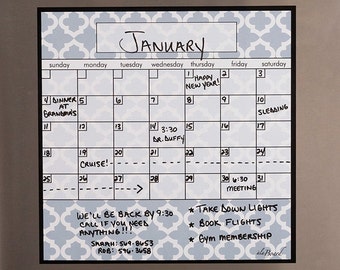 JANUARY
sunday monday tuesday wednesday thursday friday saturday
1 2 3
HAPPY
NEW YEAR!
4 5 6 7 8 9 10
DINNER
AT
GRANDMA'S
SLEDDING
11 12 13 14 15 16 17
3:30
DR. DUFFY
18 19 20 21 22 23 24
CRUISE!
25 26 27 28 29 30 31
6:30
MEETING
WE'LL BE BACK BY 9:30
CALL IF YOU NEED
ANYTHING!!!
SARAH: 569-8653
ROB: 596-3658
* TAKE DOWN LIGHTS
* BOOK FLIGHTS
* GYM MEMBERSHIP